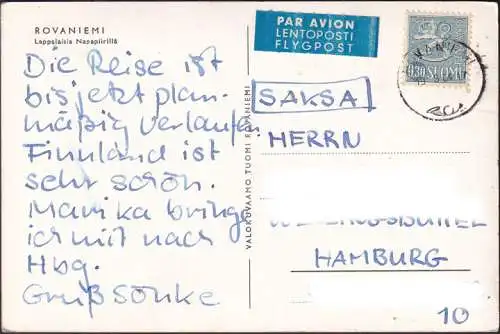 ROVANIEMI
Lappalaisia Nasapiirillä
Die Reise ist
bis jetzt plan-
mäßig verlaufen.
Finnland ist
sehr schön.
Marika bringe
ich mit nach
Hbg.
Gruß Sönke
VALOKUVAAMO TUOMI ROVANIEMI
PAR AVION
LENTOPOSTI
FLYGPOST
0,30 SUOMI
SAKSA
HERRN
HAMBURG
10